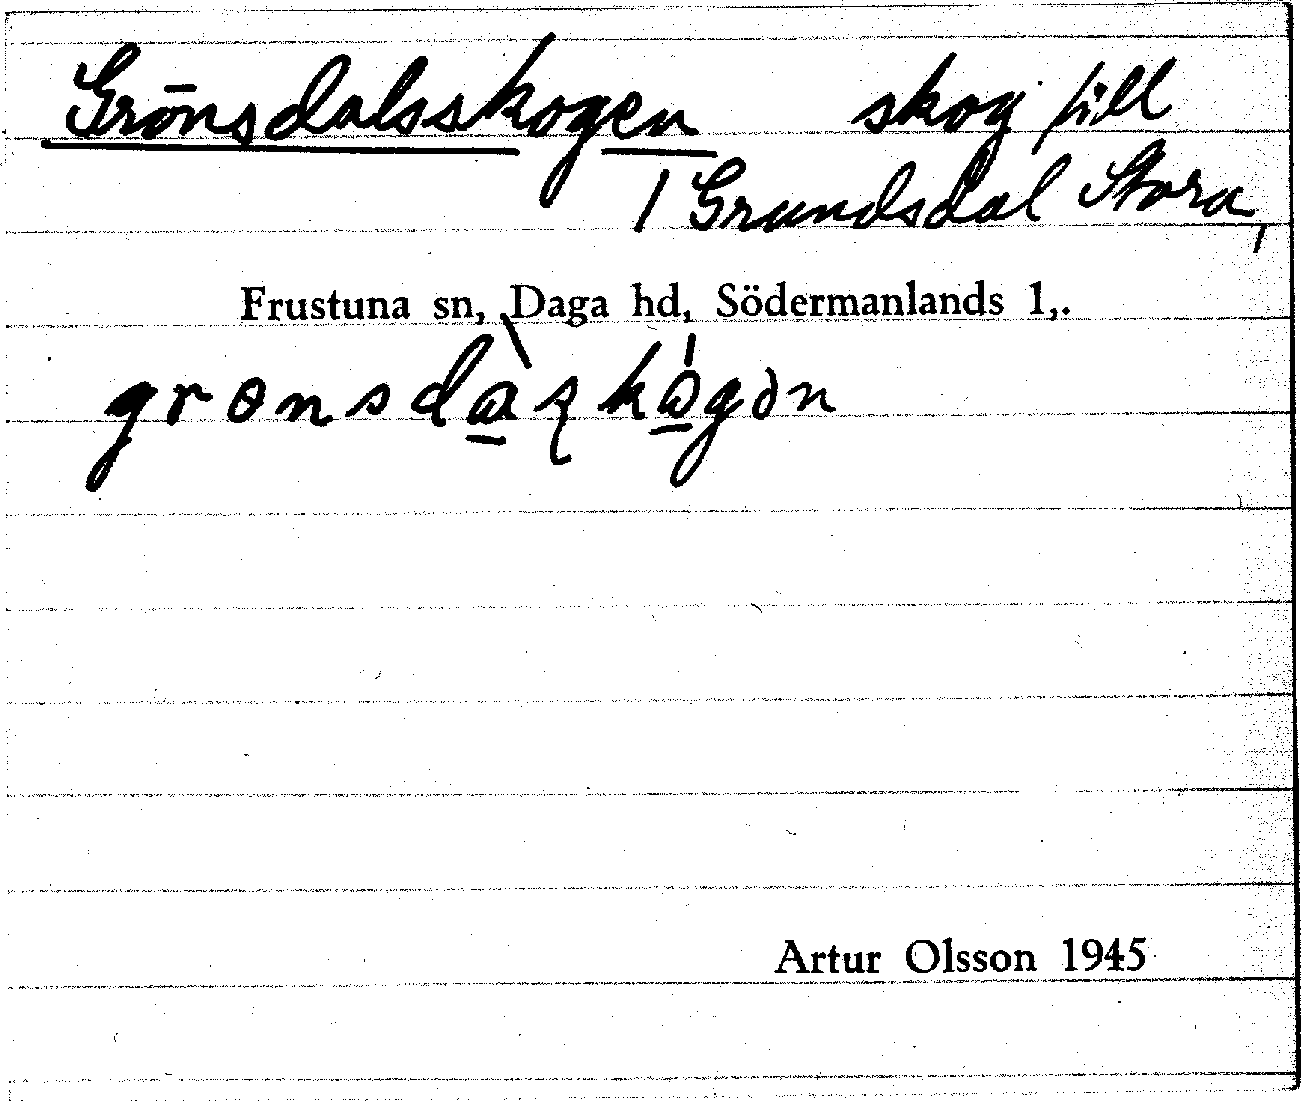 Grönsdalsskogen skog till
/ Grundsdal Stora,
Frustuna sn, Daga hd, Södermanlands l,.
Artur Olsson 1945